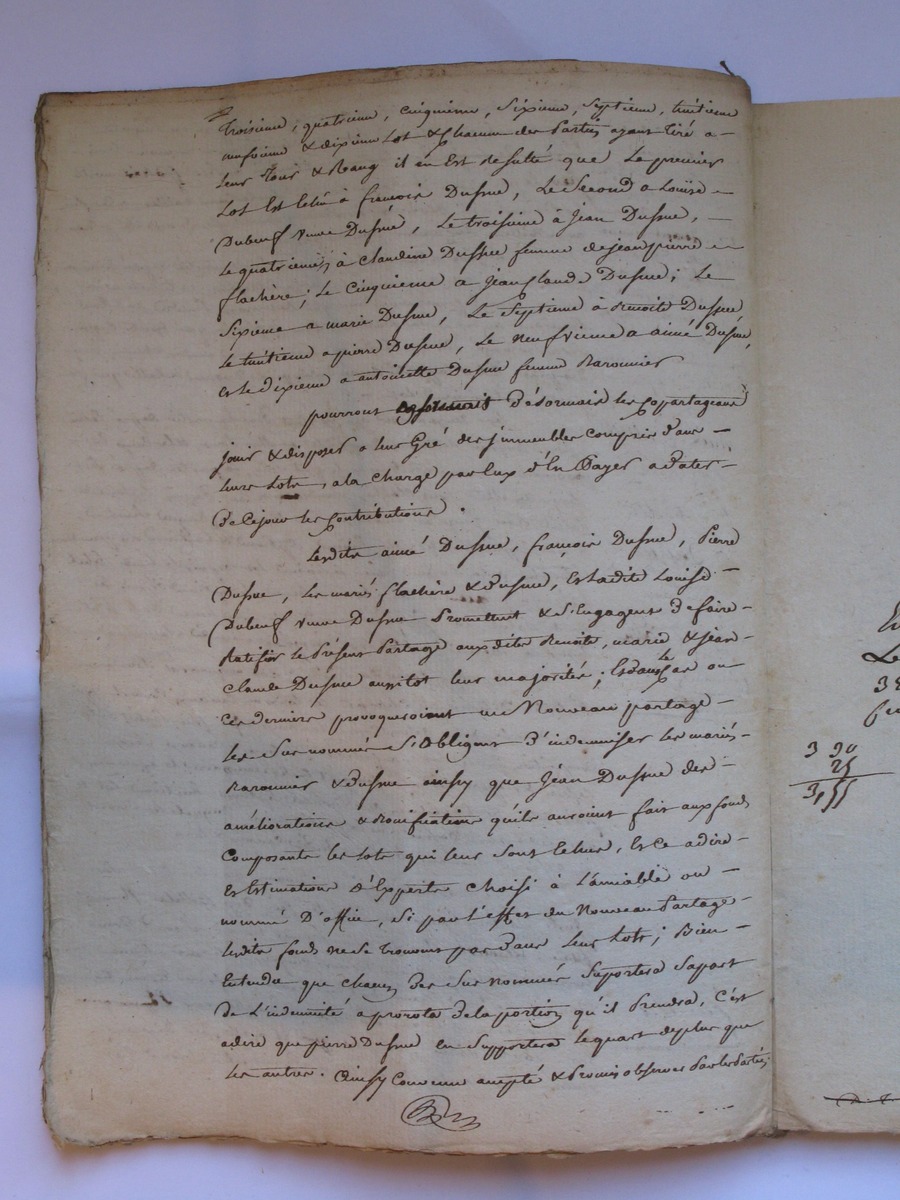 troisieme, quatrieme, cinquieme, sixieme, septieme, huitieme
neufvieme & dixieme Lot & Chacun des Parties ayant tiré a
leur tour & Rang il en Est Resulté que le premier
Lot Est Echu à françois Dufnue, Le Second a Louise
Dubeuf veuve Dufnue, Le troisieme à Jean Dufnue,
Le quatrieme à Claudine Dufnue femme de jean pierre
flachère; Le Cinquieme a Jean Claude Dufnue; Le
Sixieme a marie Dufnue, Le Septieme à Benoite Dufnue
Le huitieme a pierre Dufnue, Le neufvieme a aimé Dufnue,
et le dixieme a antoinette Dufnue femme Raronnier
pourront Désormais les Copartageans
jouir & disposer a leur Gré des jmmeubles Compris dans
leurs Lots, a la Charge par Eux d'En Payer a Dater
De Ce jour les Contributions.
Lesdits aimé Dufnue, françois Dufnue, Pierre
Dufnue, les mariés flachère & Dufnue, Et ladite Louise
Dubeuf veuve Dufnue Promettent & S'Engagent De faire
Ratifier le Présent Partage auxdits Benoite, marie & jean
Claude Dufnue aussitot leur majorités; Et dans le Cas ou
Ces derniers provoqueroient un Nouveau partage
les Sus nommés S'Obligent D'indemniser les mariés
Raronnier & Dufnue ainsy que Jean Dufnue des
améliorations & Bonification qu'ils auroient fait aux fonds
Composants les Lots qui leur Sont Echus, Et Ce adire
Et Estimations d'Experts Choisi à L'amiable ou
nommé D'office, Si par L'effet du Nouveau Partage
lesdits fonds ne Se trouvent pas dans leur Lots; Bien
Entendu que chacun Des Sus Nommés Supportera Sa part
De L'indemnité a prorota de la portion qu'il Prendra, C'est
adire que pierre Dufnue en Supportera le quart de plus que
les autres. Ainsy Convenu accepté & Promis observer Par les Parties
3 30
25
3,55